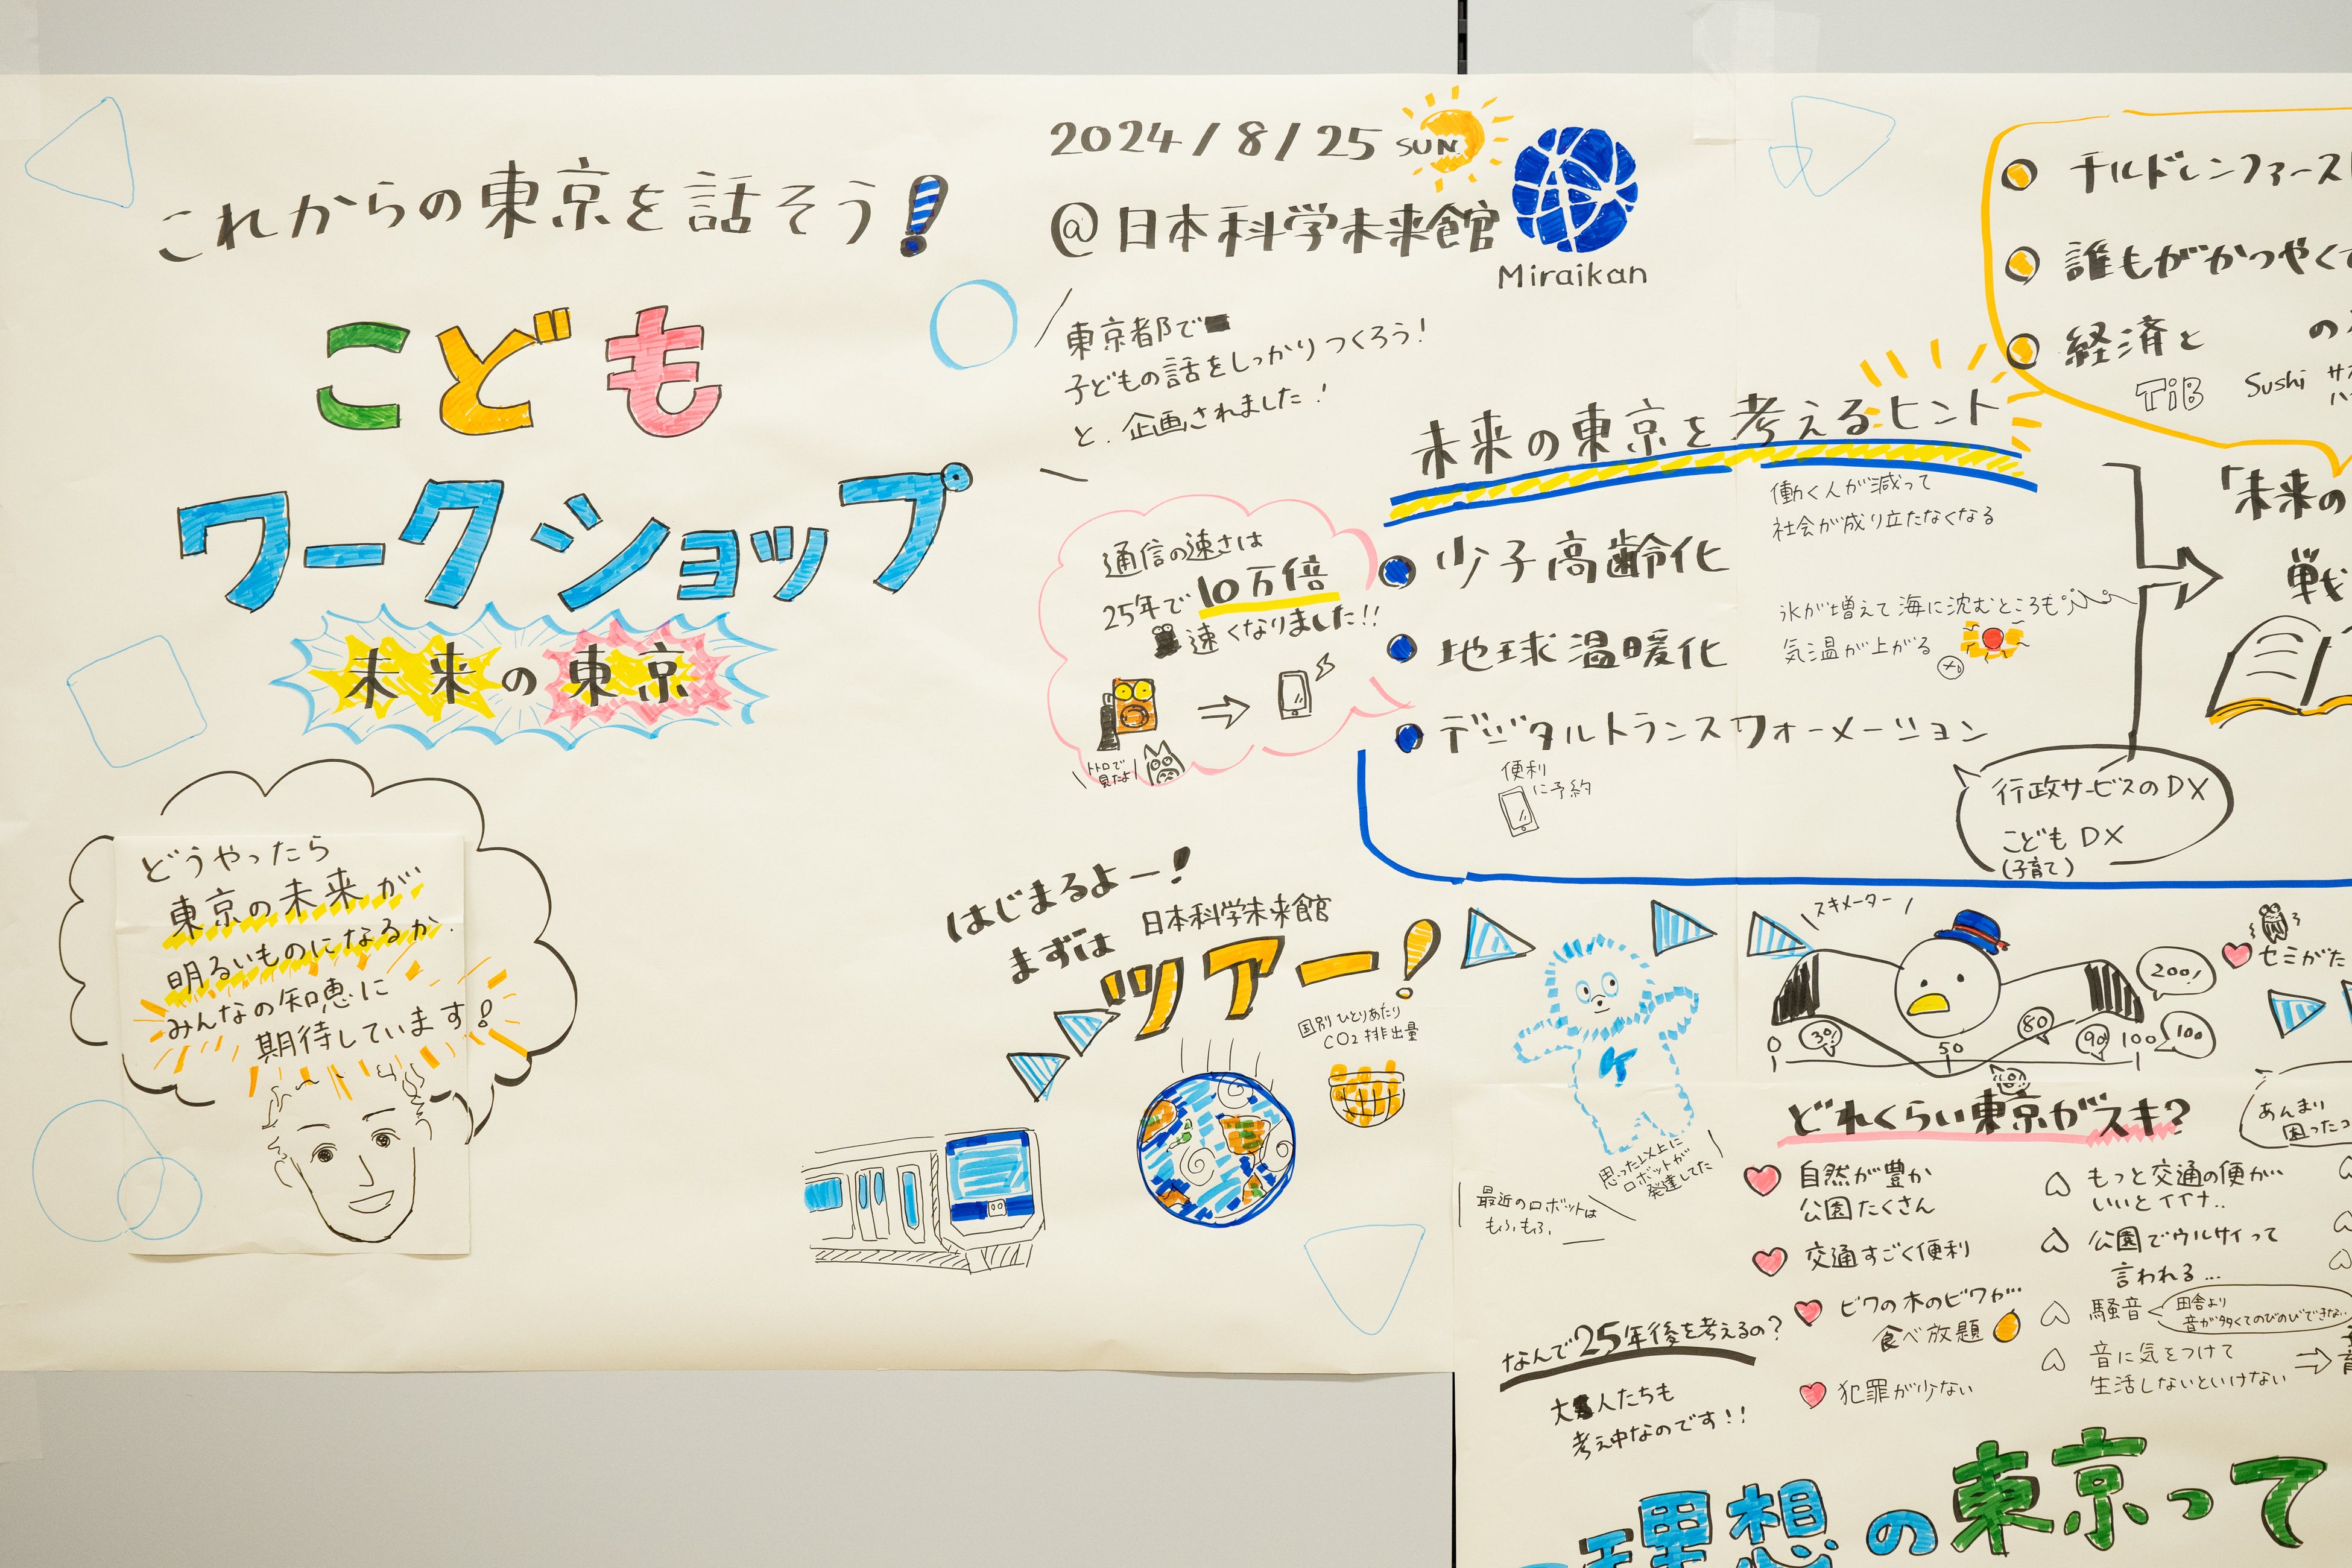 これからの東京を話そう!
こども
ワークショップ
未来の東京
どうやったら
東京の未来が
明るいものになるか.
みんなの知恵に
期待しています!
2024/8/25 SUN
@日本科学未来館
Miraikan
東京都で
子どもの話をしっかりつくろう!
と、企画されました!
通信の速さは
25年で10万倍
速くなりました!!
トトロで
見たよ
未来の東京を考えるヒント
少子高齢化
働く人が減って
社会が成り立たなくなる
地球温暖化
氷が増えて海に沈むところも
気温が上がる
デジタルトランスフォーメーション
便利
に予約
行政サービスのDX
こどもDX
(子育て)
チルドレンファースト
誰もがかつやくで
経済と
TiB
Sushi
「未来の
戦
はじまるよー!
まずは
日本科学未来館
ツアー!
国別ひとりあたり
CO2排出量
思った以上に
ロボットが
発達してた
最近のロボットは
もふもふ.
なんで25年後を考えるの?
大人たちも
考え中なのです!!
スキメーター
0
30
50
80
90
100
100
200!
セミがた
どれくらい東京がスキ?
自然が豊か
公園たくさん
交通すごく便利
ビワの木のビワが…
食べ放題
犯罪が少ない
あんまり
困ったコ
もっと交通の便が…
いいとイイナ..
公園でウルサイって
言われる...
騒音
田舎より
音が多くてのびのびできない
音に気をつけて
生活しないといけない
理想の東京って